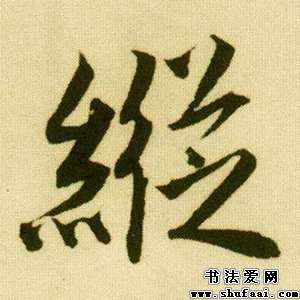 縱
书法爱网
www.shufaai.com